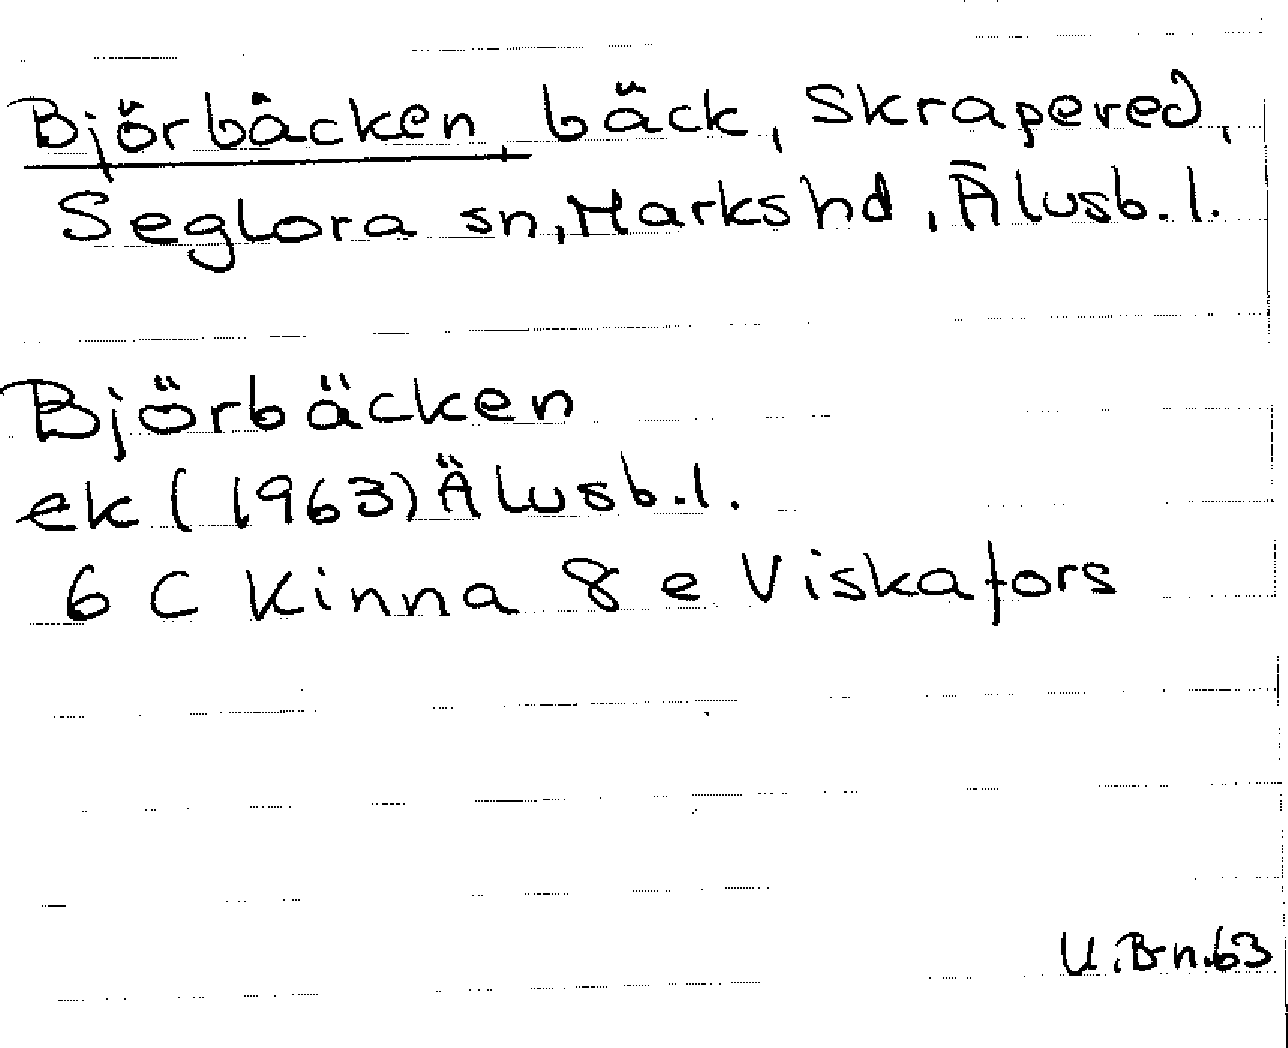 Björbäcken, bäck, Skrapered,
Seglora sn, Marks hd, Älvsb. l.
Björbäcken
ek (1963) Älvsb. l.
6 C Kinna 8 e Viskafors
U. Bn. 63